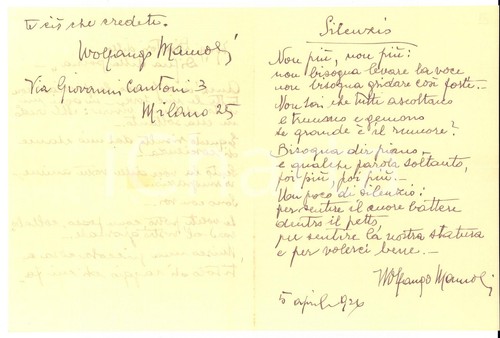 te ciò che credete.
Wolfango
Via Giovanni Cantoni 3
Milano 25
Silenzio
Non più, non più:
non bisogna levare la voce
non bisogna gridare così forte.
Non senti che tutti ascoltano
e tremano e gemono
se grande è il rumore?
Bisogna dir piano
e qualche parola soltanto,
poi più, poi più.
Un poco di silenzio:
per sentire il cuore battere
dentro il petto,
per sentire la nostra statura
e per volerci bene.
Wolfango
5 aprile